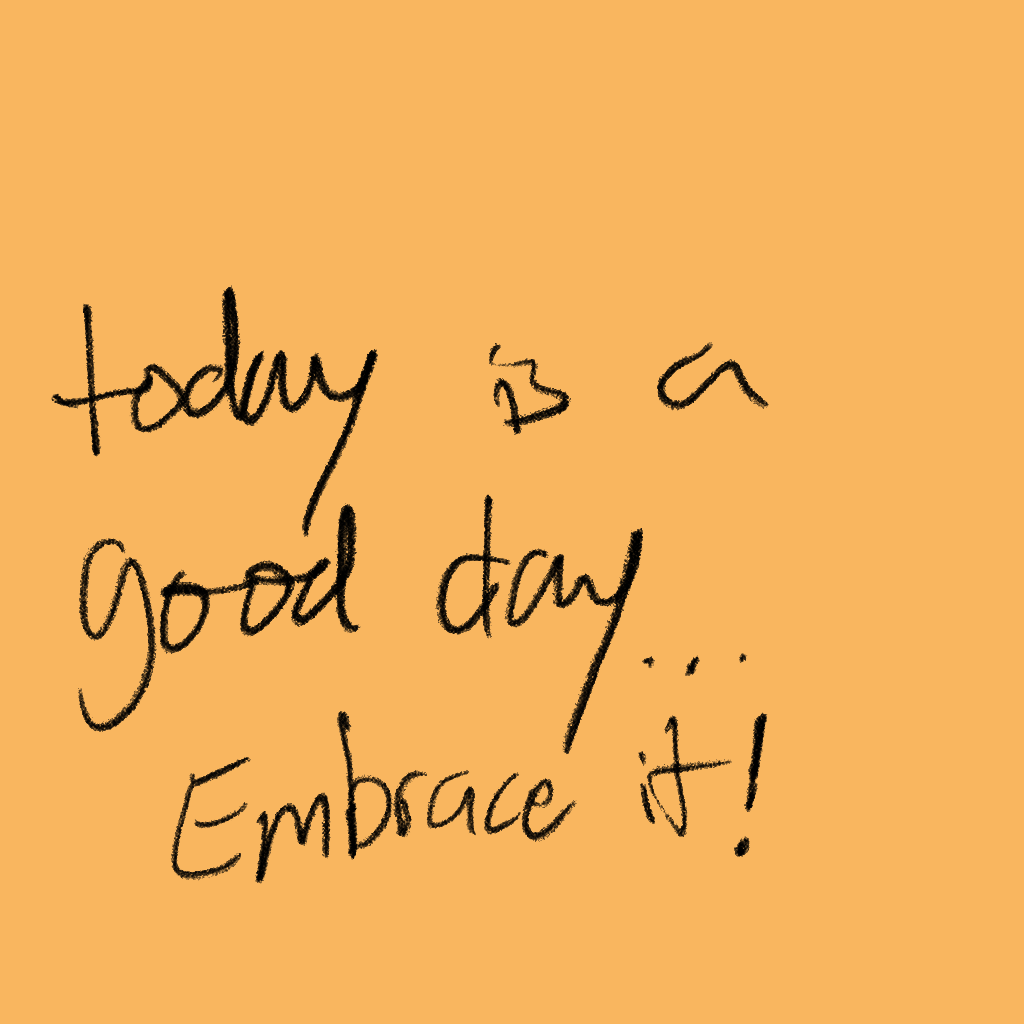 today is a
good day...
Embrace it!